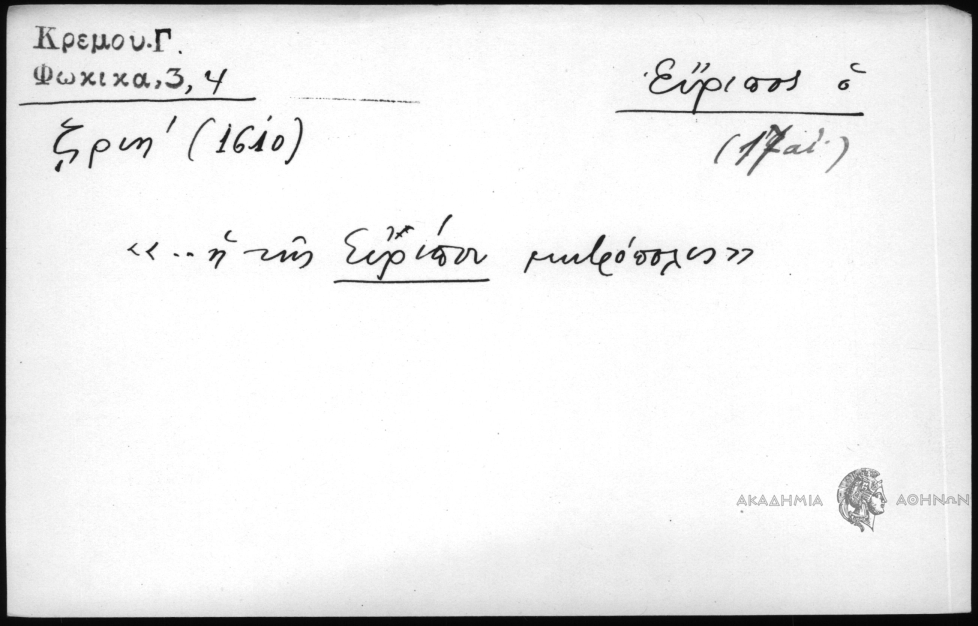 Κρεμου.Γ.
Φωκικα,3,4
Εὔριπος ὁ
͵ζριη΄ (1610)
(17 αἰ.)
«.. ἡ τῆς Εὐρίπου μητρόπολις»
ΑΚΑΔΗΜΙΑ ΑΘΗΝΩΝ